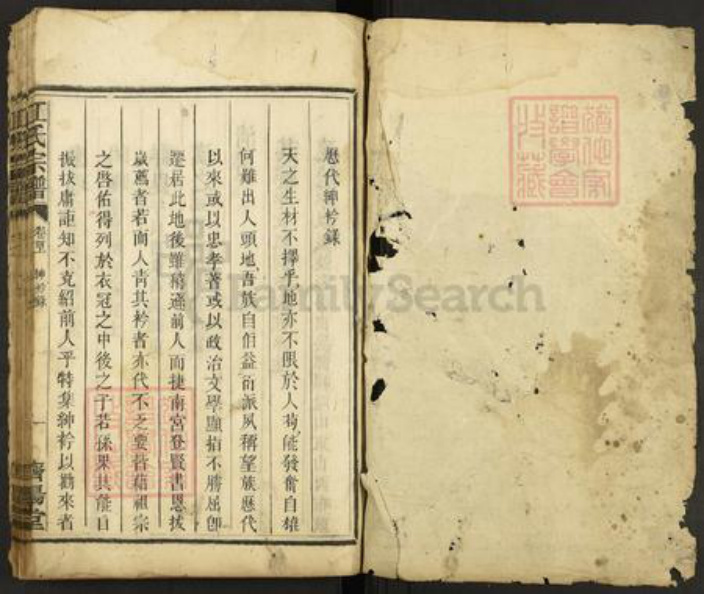 歷代紳衿錄
天之生材不擇乎地亦不限於人苟能發奮自雄
何難出人頭地吾族自伯益衍派夙稱望族歷代
以來或以忠孝著或以政治文學顯指不勝屈卽
遷居此地後雖稍遜前人而捷南宮登賢書恩拔
歲薦者若而人靑其衿者亦代不乏要皆藉祖宗
之啓佑得列於衣冠之中後之子若孫果其能自
振拔庸詎知不克紹前人乎特集紳衿以勸來者
江氏宗譜
卷
紳衿錄
一
濟陽堂
譜學會
收藏
FamilySearch